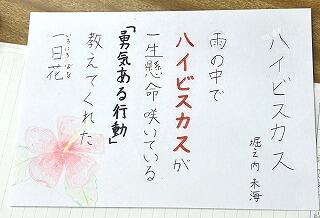 ハイビスカス
堀之内 未海
雨の中で
ハイビスカスが
一生懸命咲いている
「勇気ある行動」
教えてくれた
一日花